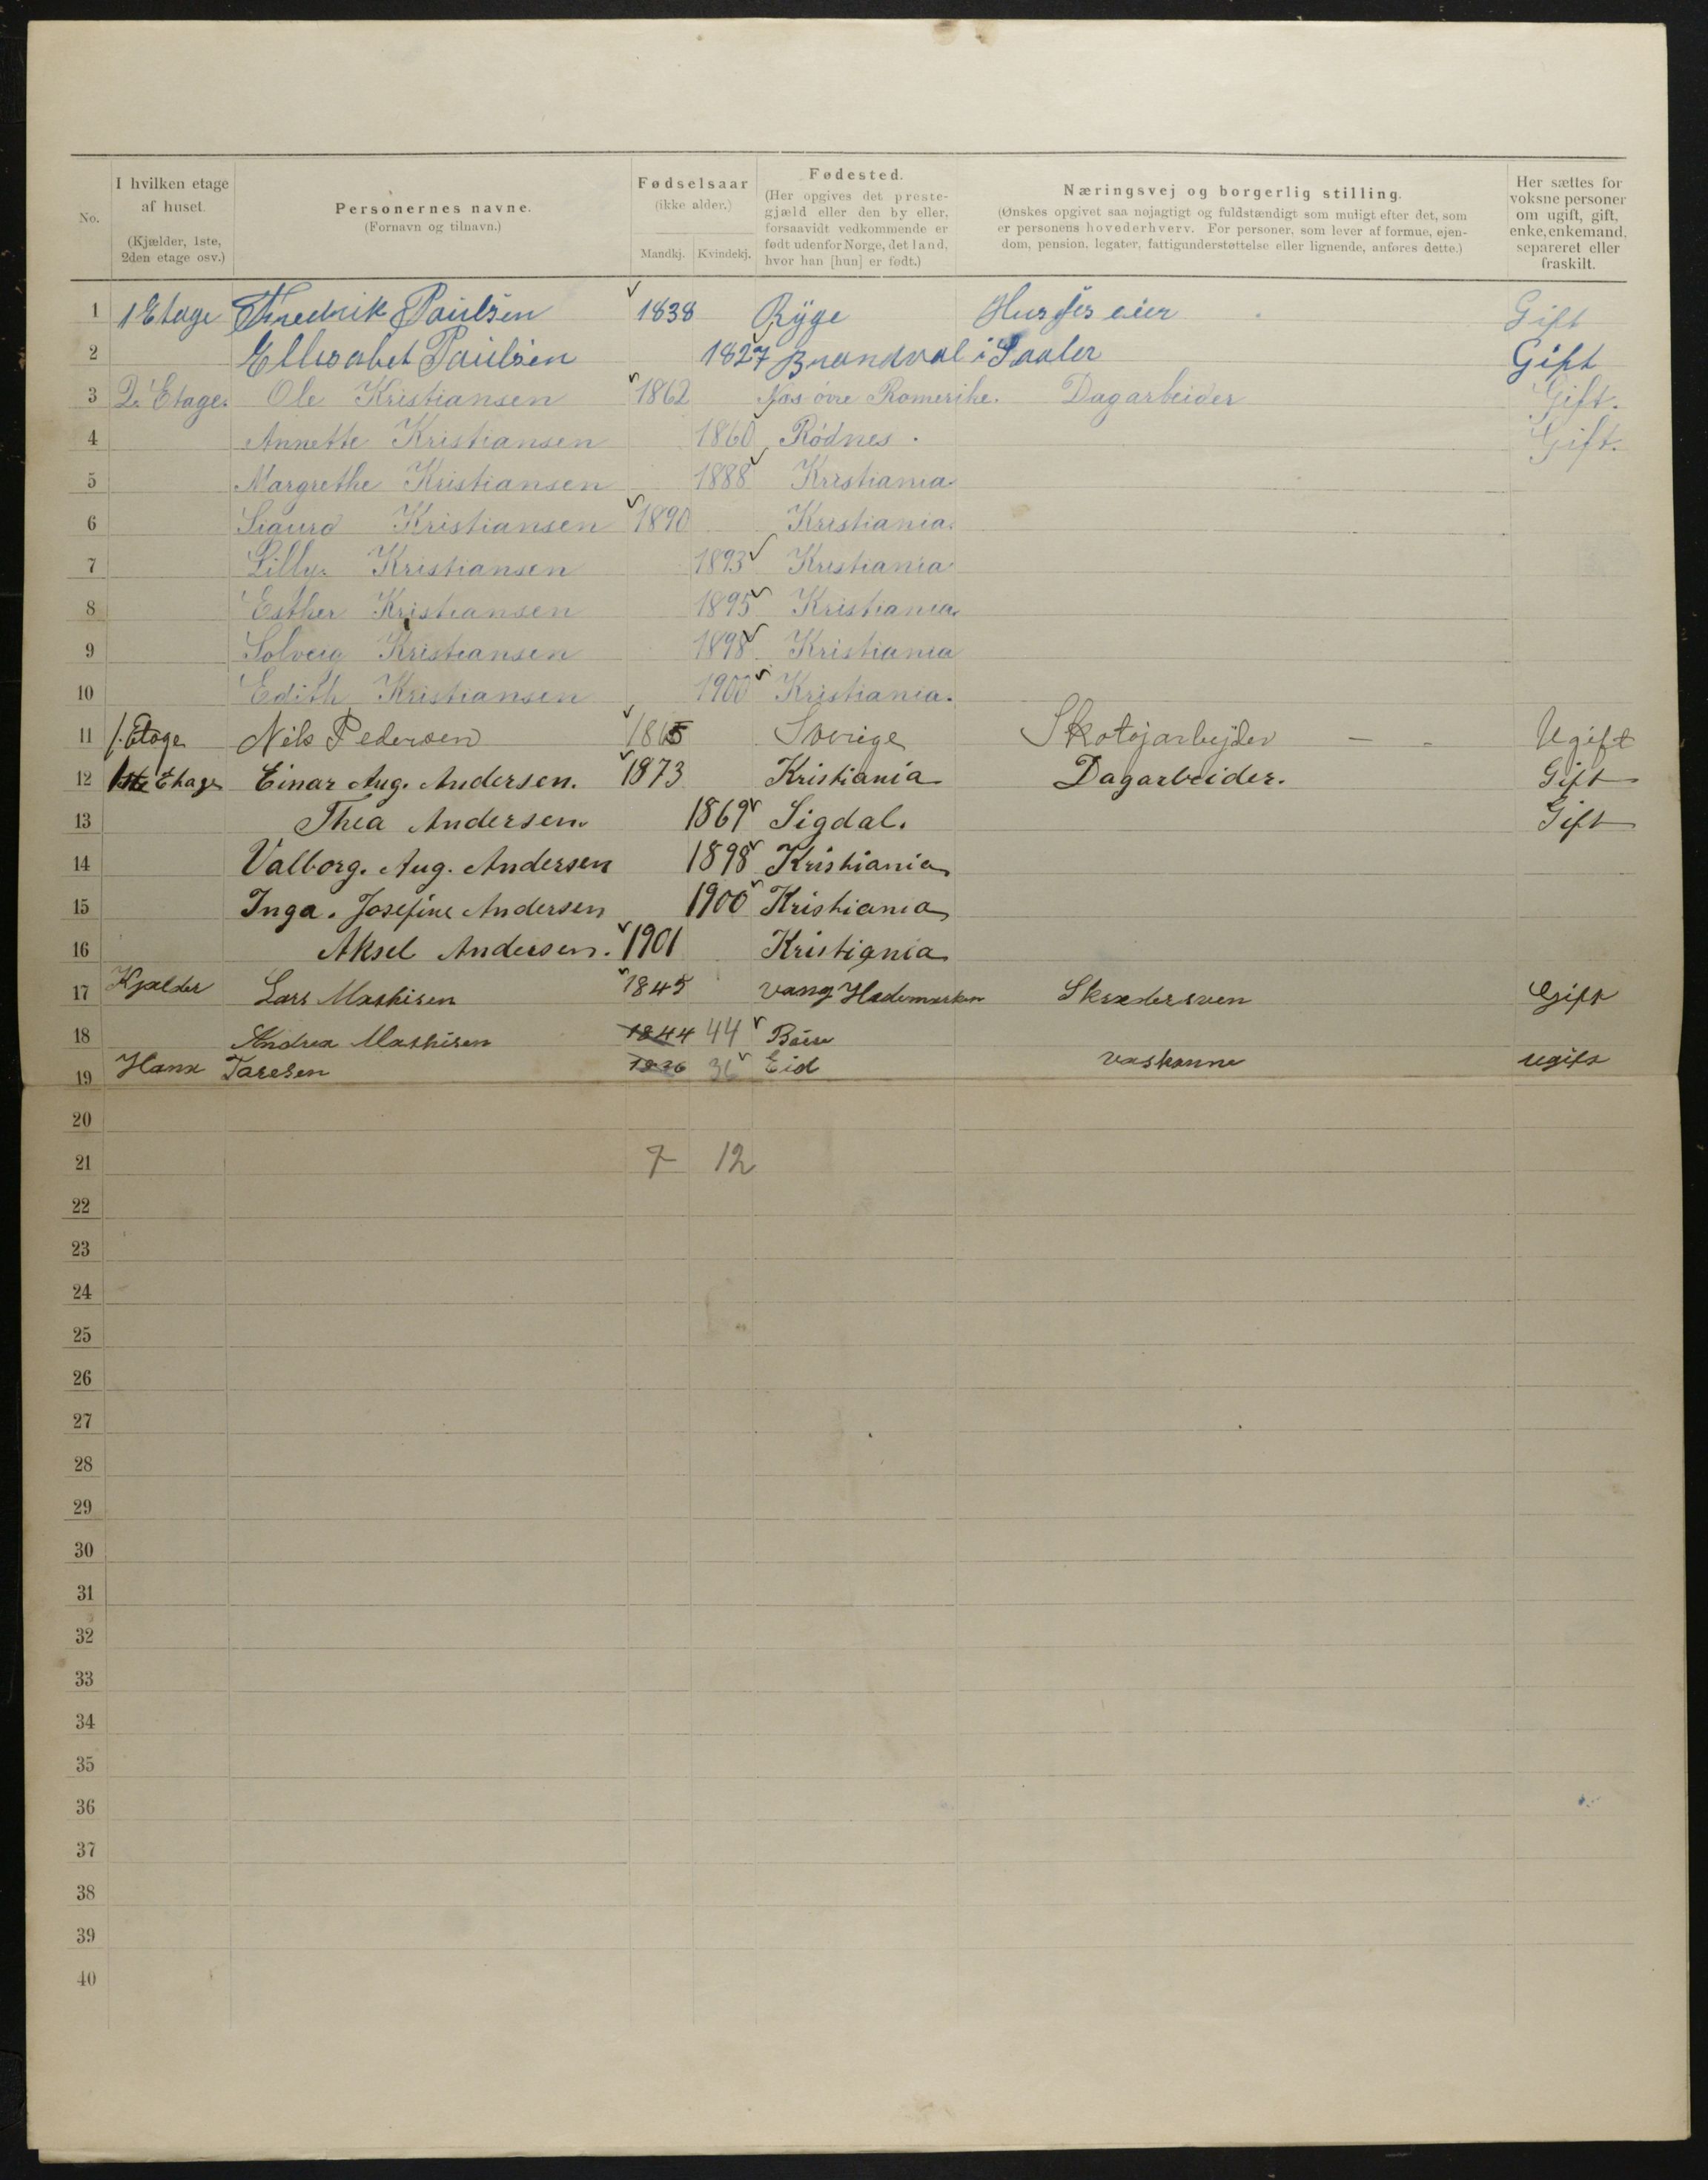 No.
I hvilken etage af huset.
(Kjælder, 1ste, 2den etage osv.)
Personernes navne.
(Fornavn og tilnavn.)
Fødselsaar
(ikke alder.)
Mandkj. Kvindekj.
Fødested.
(Her opgives det preste-
gjæld eller den by eller,
forsaavidt vedkommende er
født udenfor Norge, det land,
hvor han [hun] er født.)
Næringsvej og borgerlig stilling.
(Ønskes opgivet saa nøjagtigt og fuldstændigt som muligt efter det, som
er personens hovederhverv. For personer, som lever af formue, ejen-
dom, pension, legater, fattigunderstøttelse eller lignende, anføres dette.)
Her sættes for
voksne personer
om ugift, gift,
enke, enkemand,
separeret eller
fraskilt.
1 1 Etage Fredrik Paulsen 1838 Rÿge eier Gift
2 Ellisabet Paulsen 1827 Brandval i Soaler Gift
3 2. Etage. Ole Kristiansen 1862 Næs øvre Romerike. Dagarbeider Gift.
4 Annette Kristiansen 1860 Rödnes. Gift.
5 Margrethe Kristiansen 1888 Kristiania
6 Sigurd Kristiansen 1890 Kristiania.
7 Lilly. Kristiansen 1893 Kristiania
8 Esther Kristiansen 1895 Kristiania.
9 Solveig Kristiansen 1898 Kristiania
10 Edith Kristiansen 1900 Kristiania.
11 1. Etage Nils Pedersen 1865 Sverige Skotøjarbejder — - Ugift
12 1ste Etage Einar Aug. Andersen. 1873 Kristiania Dagarbeider. Gift
13 Thea Andersen. 1869 Sigdal. Gift
14 Valborg. Aug. Andersen 1898 Kristiania
15 Inga. Josefine Andersen 1900 Kristiania
16 Aksel Andersen. 1901 Kristiania
17 Kjælder Lars Mathisen 1845 Vang Hedemarken Skrædersven Gift
18 Andrea Mathisen 1844 44
19 1836 36 Eid vaskonne ugift
20
21 7 12
22
23
24
25
26
27
28
29
30
31
32
33
34
35
36
37
38
39
40